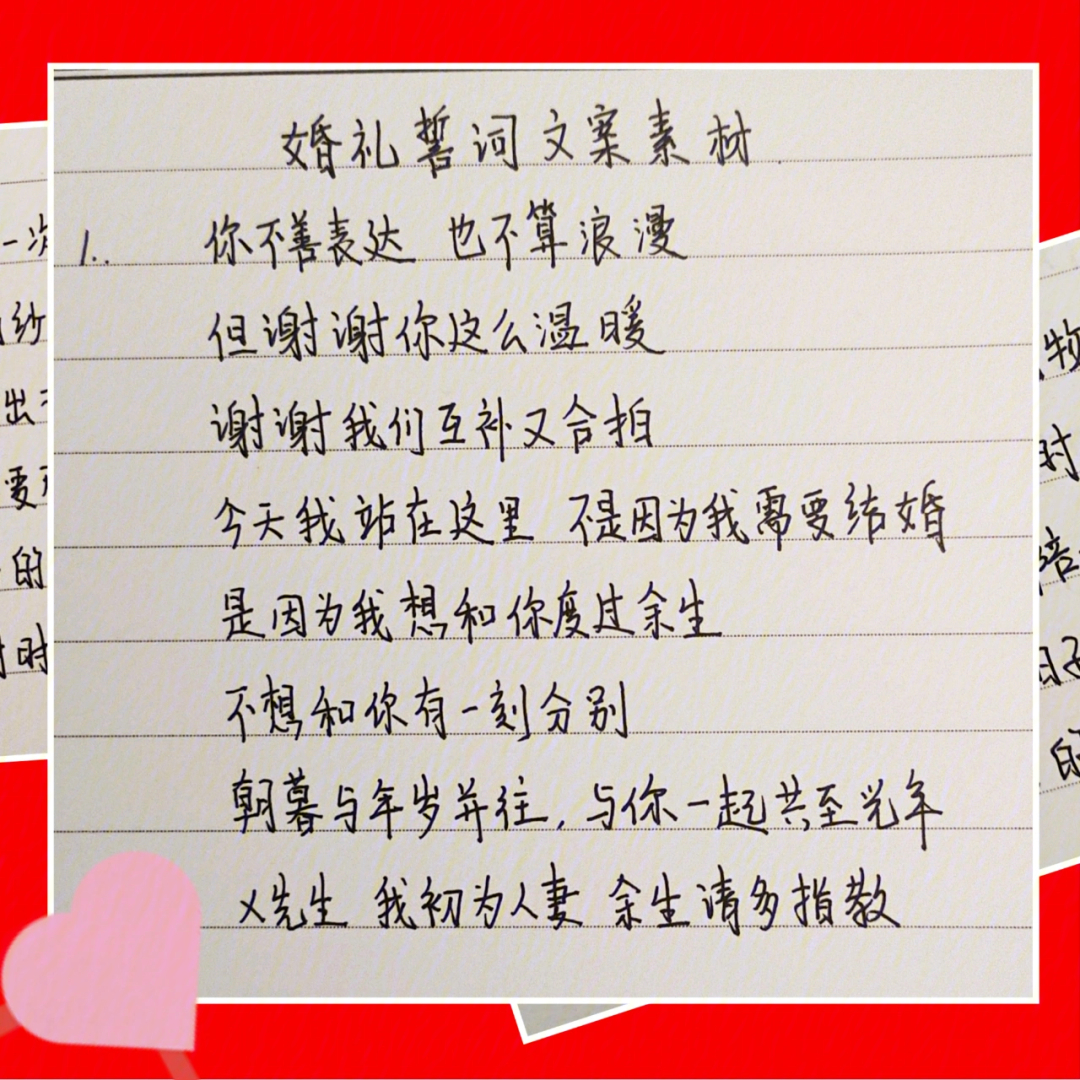 婚礼誓词文案素材
1.. 你不善表达 也不算浪漫
但谢谢你这么温暖
谢谢我们互补又合拍
今天我站在这里 不是因为我需要结婚
是因为我想和你度过余生
不想和你有一刻分别
朝暮与年岁并往,与你一起共至光年
x先生 我初为人妻 余生请多指教
一次
纱
出
要
的
时时
物
时
陪
日子
的